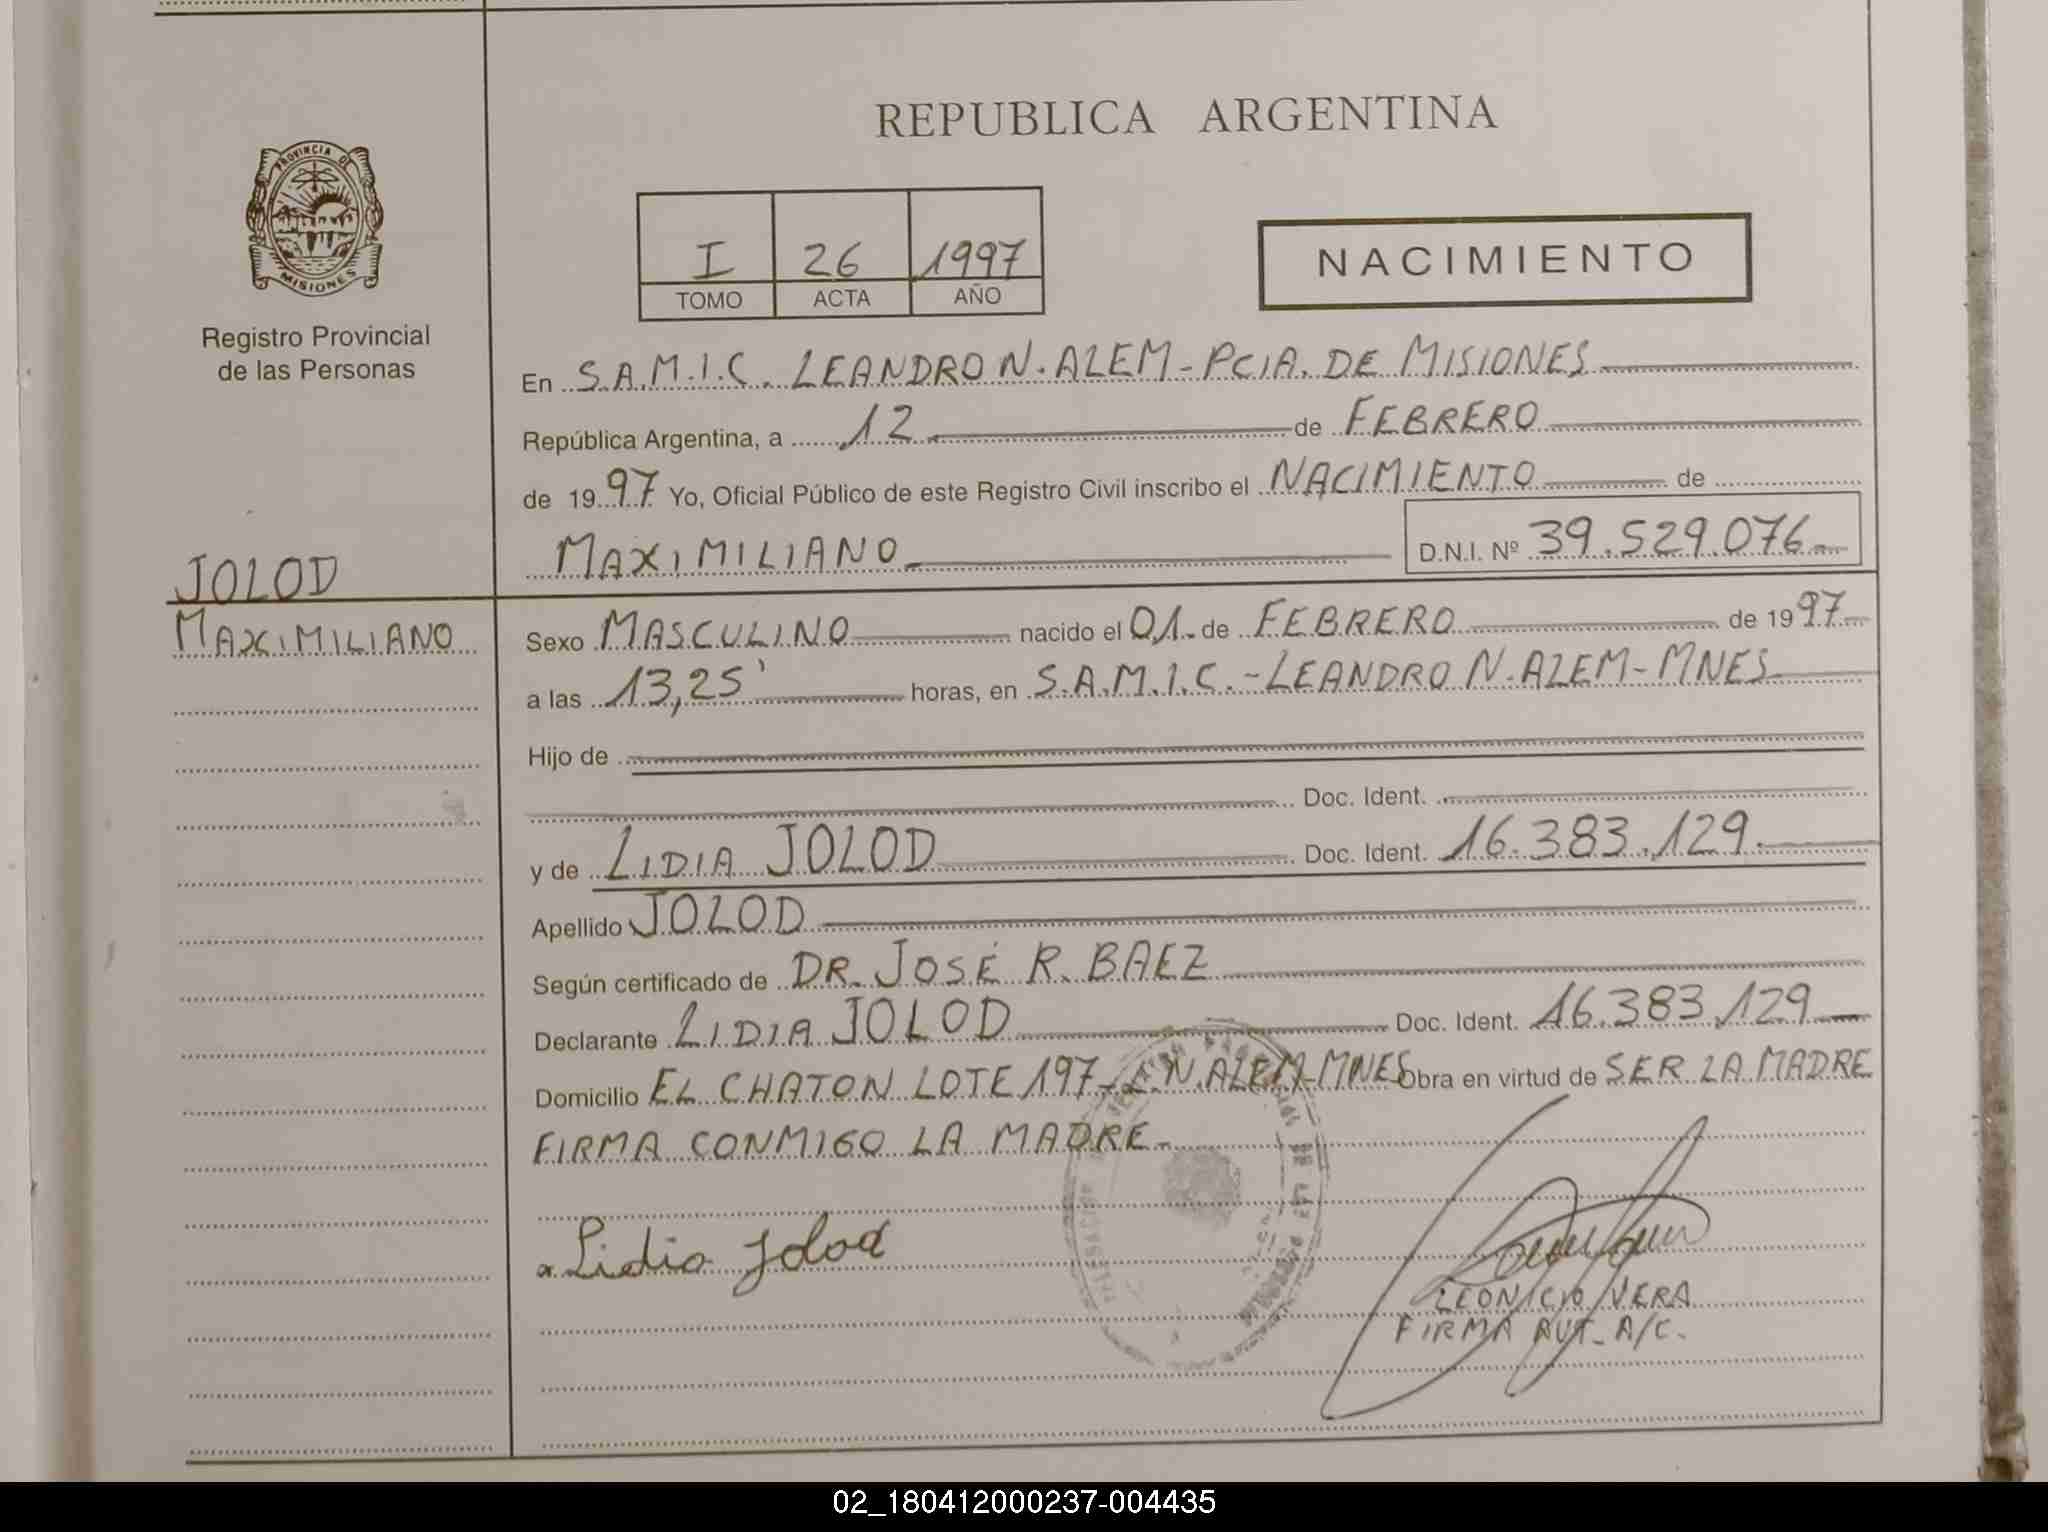 REPUBLICA ARGENTINA
PROVINCIA DE
MISIONES
Registro Provincial
de las Personas
I 26 1997
TOMO ACTA AÑO
NACIMIENTO
En S.A.M.I.C. LEANDRO N. ALEM - PCIA. DE MISIONES
República Argentina, a 12 de FEBRERO
de 1997 Yo, Oficial Público de este Registro Civil inscribo el NACIMIENTO de
MAXIMILIANO D.N.I. Nº 39.529.076
JOLOD
MAXIMILIANO
Sexo MASCULINO nacido el 01 de FEBRERO de 1997
a las 13,25' horas, en S.A.M.I.C. - LEANDRO N. ALEM - MNES
Hijo de
Doc. Ident.
y de LIDIA JOLOD Doc. Ident. 16.383.129
Apellido JOLOD
Según certificado de DR. JOSÉ R. BAEZ
Declarante LIDIA JOLOD Doc. Ident. 16.383.129
Domicilio EL CHATON LOTE 197 - L. N. ALEM - MNES Obra en virtud de SER LA MADRE
FIRMA CONMIGO LA MADRE -
Lidia Jolod
LEONICIO VERA
FIRMA AUT. A/C.
02_180412000237-004435